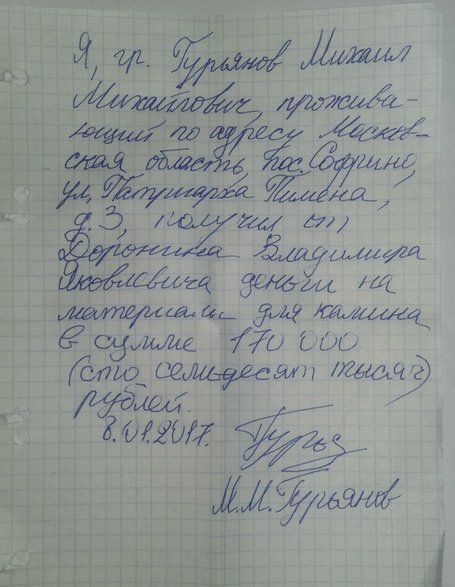 Я, гр. Гурьянов Михаил
Михайлович, прожива-
ющий по адресу Москов-
ская область, пос. Софрино,
ул. Патриарха Пимена,
д. 3, получил от
Доронина Владимира
Яковлевича деньги на
материалы для камина
в сумме 170 000
(сто семьдесят тысяч)
рублей.
8.01.2017.
М.М. Гурьянов